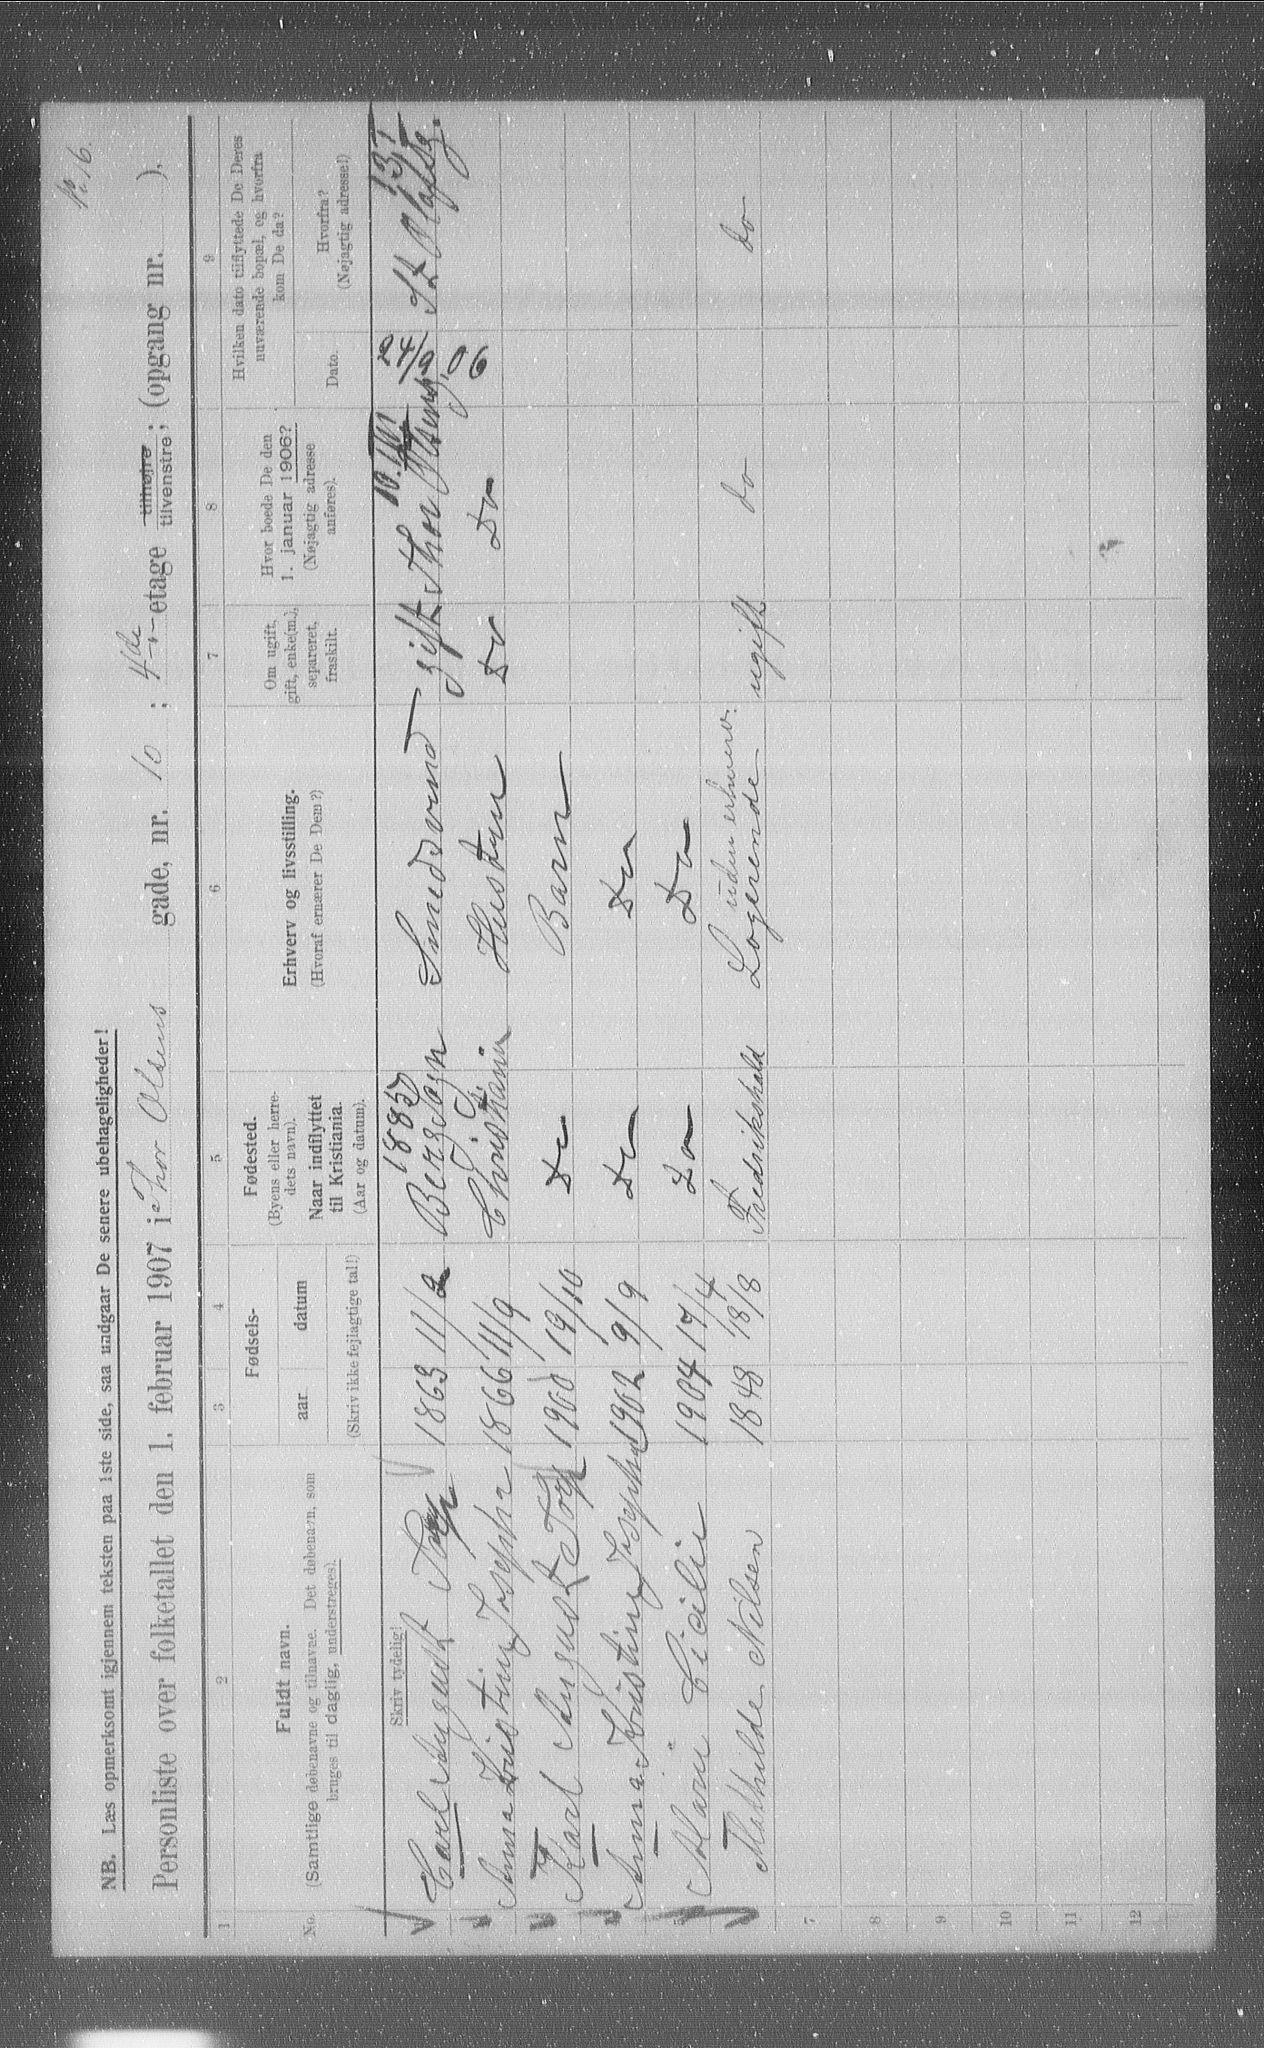 No. 6.
NB. Læs opmerksomt igjennem teksten paa 1ste side, saa undgaar De senere ubehageligheder!
Personliste over folketallet den 1. februar 1907 i Thor Olsens gade, nr. 10 ; 4de etage tilhøjre tilvenstre; (opgang nr. ).
1 2 3 4 5 6 7 8 9
No.
Fuldt navn.
(Samtlige døbenavne og tilnavne. Det døbenavn, som
bruges til daglig, understreges).
Skriv tydelig!
Fødsels-
aar datum
(Skriv ikke fejlagtige tal!)
Fødested.
(Byens eller herre-
dets navn).
Naar indflyttet
til Kristiania.
(Aar og datum).
Erhverv og livsstilling.
(Hvoraf ernærer De Dem?)
Om ugift,
gift, enke(m.),
separeret,
fraskilt.
Hvor boede De den
1. januar 1906?
(Nøjagtig adresse
anføres).
Hvilken dato tilflyttede De Deres
nuværende bopæl, og hvorfra
kom De da?
Dato.
Hvorfra?
(Nøjagtig adresse!)
1885 10.
Carl August 1863 11/2 Smedsvend gift Thor Olsensg. 24/9 06 St Olafsg.
Anna Kristine Josepha 1866 11/9 Christiania Hustru Do Do
Karl August Torp 1900 19/10 Do Barn
Anna Kristine Josephine 1902 9/9 Do Do
5 Marie Cicilie 1904 17/4 Do Do
uden erhverv.
Mathilde Nilsen 1848 18/8 Fredrikshald Logerende ugift do do
7
8
9
10
11
12